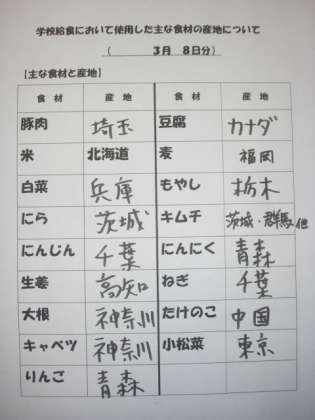 学校給食において使用した主な食材の産地について
（　3月　8日分）
【主な食材と産地】
食　材　産　地　食　材　産　地
豚肉　埼玉　豆腐　カナダ
米　北海道　麦　福岡
白菜　兵庫　もやし　栃木
にら　茨城　キムチ　茨城・群馬他
にんじん　千葉　にんにく　青森
生姜　高知　ねぎ　千葉
大根　神奈川　たけのこ　中国
キャベツ　神奈川　小松菜　東京
りんご　青森